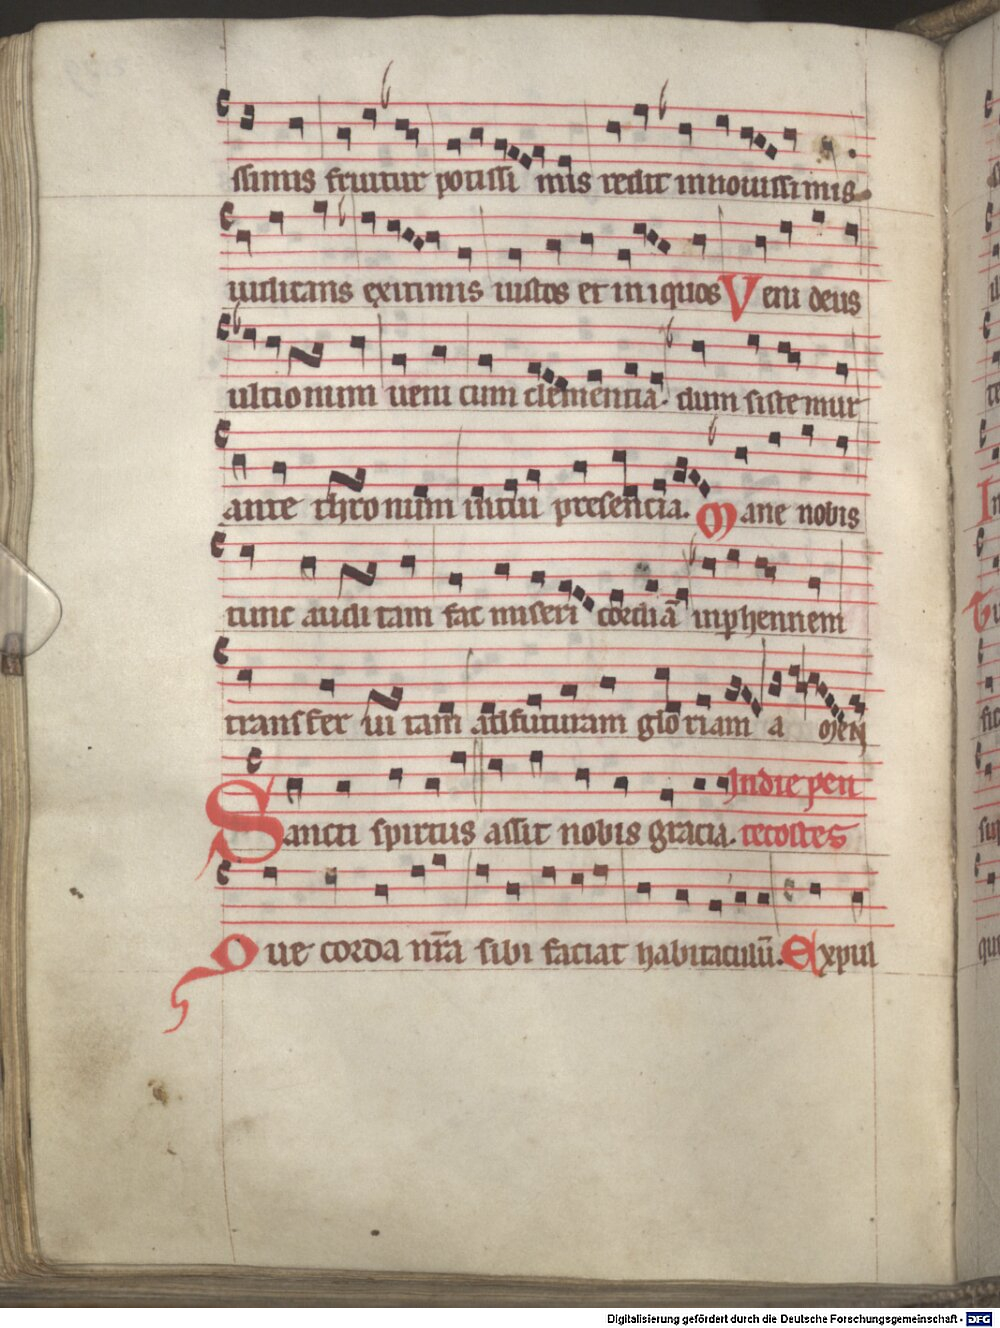 ssimis fruitur potissi mis redit innouissimis
iudicans eximiis iustos et iniquos Veni deus
ultionum ueni cum clemencia. dum sistemur
ante thronum intui presencia. Mane nobis
tunc auditam fac miseri cordiā inphennem
transfer ui tam adfuturam gloriam a men
In die pen
Sancti spiritus assit nobis gracia. tecostes
Que corda nr̄a sibi faciat habitaculū. Expul
Digitalisierung gefördert durch die Deutsche Forschungsgemeinschaft - DFG